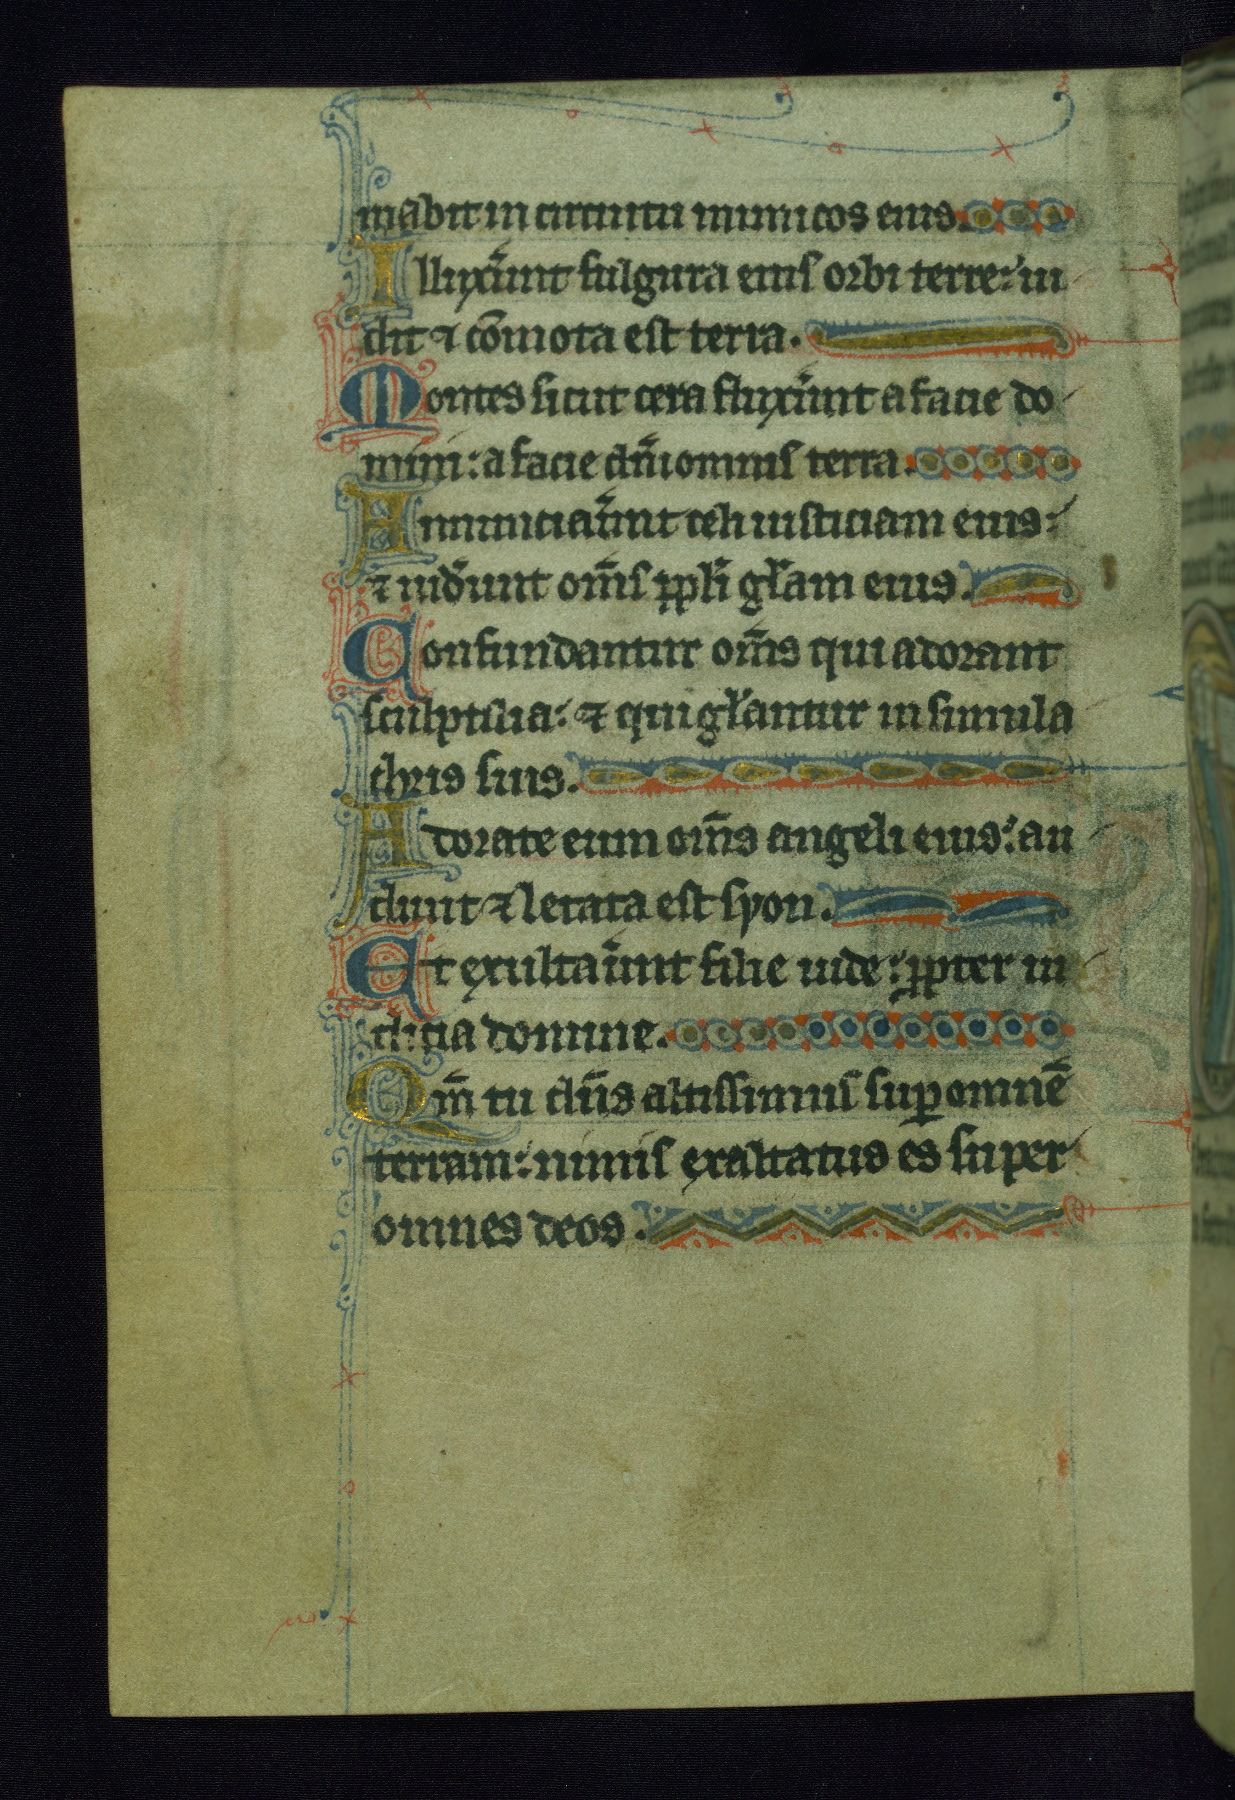 mabit in circuitu inimicos eius.
Illuxerunt fulgura eius orbi terre: ui
dit ⁊ cōmota est terra.
Montes sicut cera fluxerunt a facie do
mini: a facie dn̄i omnis terra.
Annunciauerunt celi iusticiam eius:
⁊ uiderunt om̄s ppl̄i gl̄am eius.
Confundantur om̄s qui adorant
sculptilia: ⁊ qui gl̄antur in simula
chris suis.
Adorate eum om̄s angeli eius: au
diuit ⁊ letata est syon.
Et exultauerunt filie iude: ꝓpter iu
dicia domine.
Qm̄ tu dn̄s altissimus suꝑ omnē
terram: nimis exaltatus es super
omnes deos.